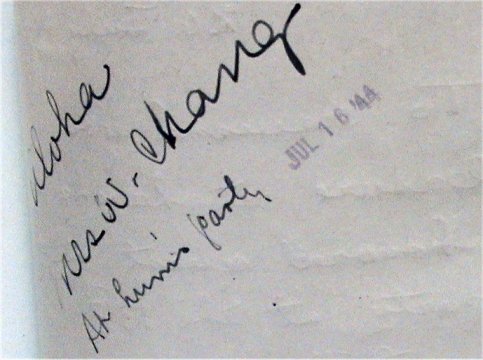 Aloha
Mrs W. Chang
At Lum's party
JUL 16 '44